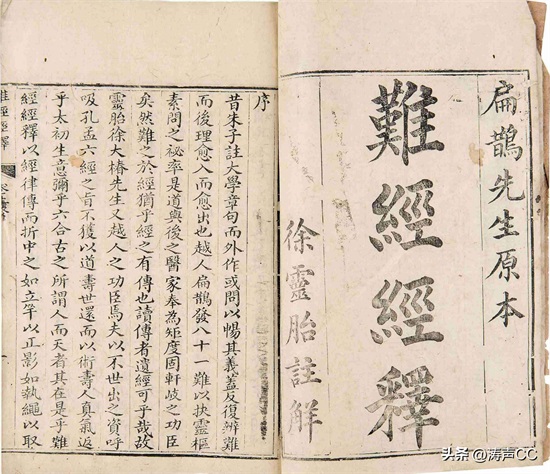 扁鵲先生原本
難經經釋
徐靈胎註解
序
昔朱子註大學章句而外作或問以暢其義蓋反復辨難
而後理愈入而愈出也越人扁鵲發八十一難以抉靈樞
素問之祕率是道與後之醫家奉為矩度固軒岐之功臣
矣然難之於經猶乎經之有傳也讀傳者遺經可乎哉故
靈胎徐大椿先生又越人之功臣焉夫以不世出之資呼
吸孔孟六經之旨不獲以道壽世還而以術壽人真氣返
乎太初生意彌乎六合古之所謂人而天者其在是乎難
經經釋以經律傳而折中之如立竿以正影如執繩以取
難經經釋
头条 @涛声CC